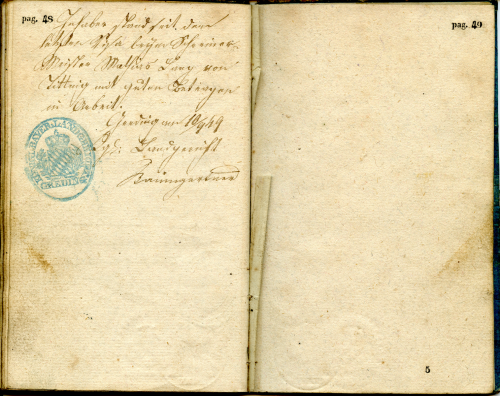 pag. 48
Inhaber stand seit dem
letzten Visa beym Schreiner-
Meister Mathias Lang von
mit gutem Betragen
in Arbeit.
am 10/9 49
Landgericht
Baumgartner
pag. 49
5